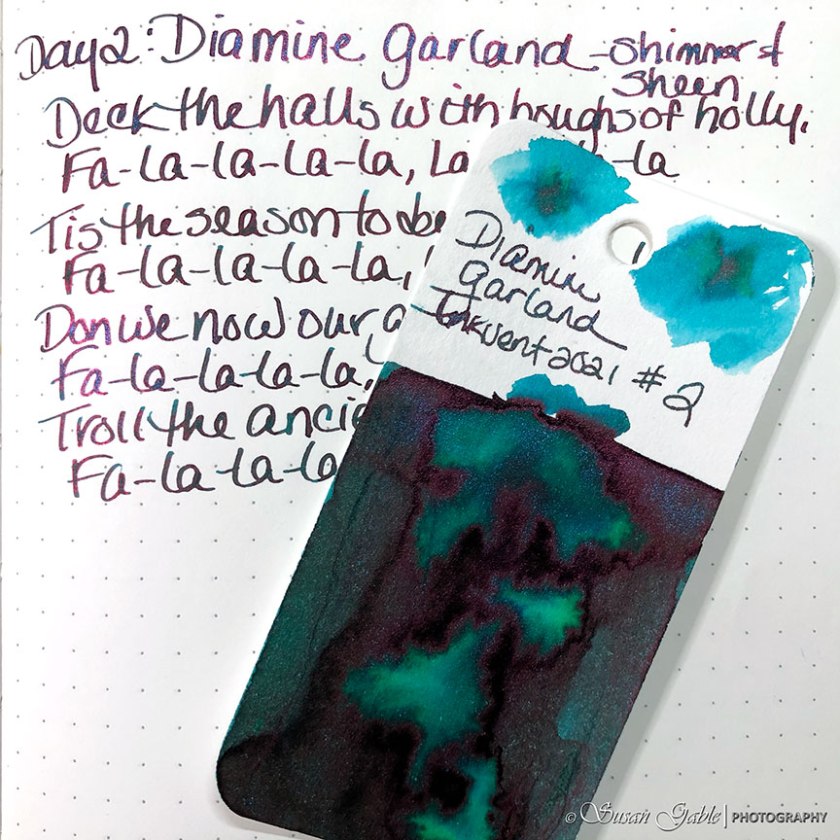 Day 2: Diamine Garland - Shimmer &
Sheen
Deck the halls with boughs of holly.
Fa-la-la-la-la, La -la
Tis the season to be
Fa-la-la-la-la,
Don we now our
Fa-la-la-la-la,
Troll the
Fa-la-la-la
Diamine
Garland
Inkvent 2021 #2
© Susan Gable | PHOTOGRAPHY